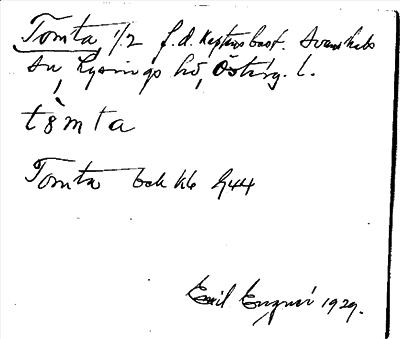 Tomta 1/2 f.d. kaptensbost. Svanhals
sn, Lysings hd, Österg. l.
tòmta
Tomta bck kb G44
Emil 1929.